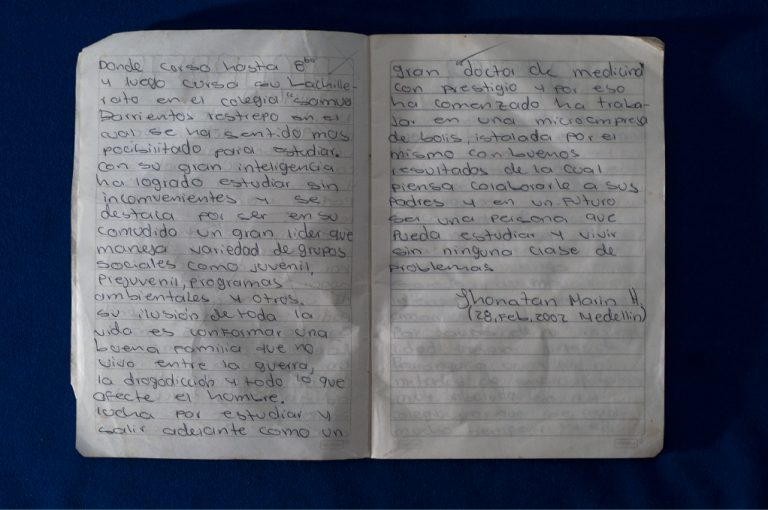 Donde curso hasta 8bo
y luego cursa su bachille-
rato en el colegio "samuel
Barrientos restrepo en el
cual se ha sentido mas
pocibilitado para estudiar.
con su gran inteligencia
ha logrado estudiar sin
incomvenientes y se
destaca por ser en su
comudido un gran lider que
maneja variedad de grupos
sociales como juvenil,
prejuvenil, programas
ambientales y otros.
su ilusión de toda la
vida es conformar una
buena familia que no
vivo entre la guerra,
la drogadicción y todo lo que
afecte el hombre.
lucha por estudiar y
salir adelante como un
gran "doctor de medicina"
con prestigio y por eso
ha comenzado ha traba-
jar en una microempresa
de bolis, istalada por el
mismo con buenos
resultados de la cual
piensa colaborarle a sus
padres y en un futuro
ser una persona que
pueda estudiar y vivir
sin ninguna clase de
problemas
Jhonatan Marin H.
(28, Feb, 2002 Medellin)